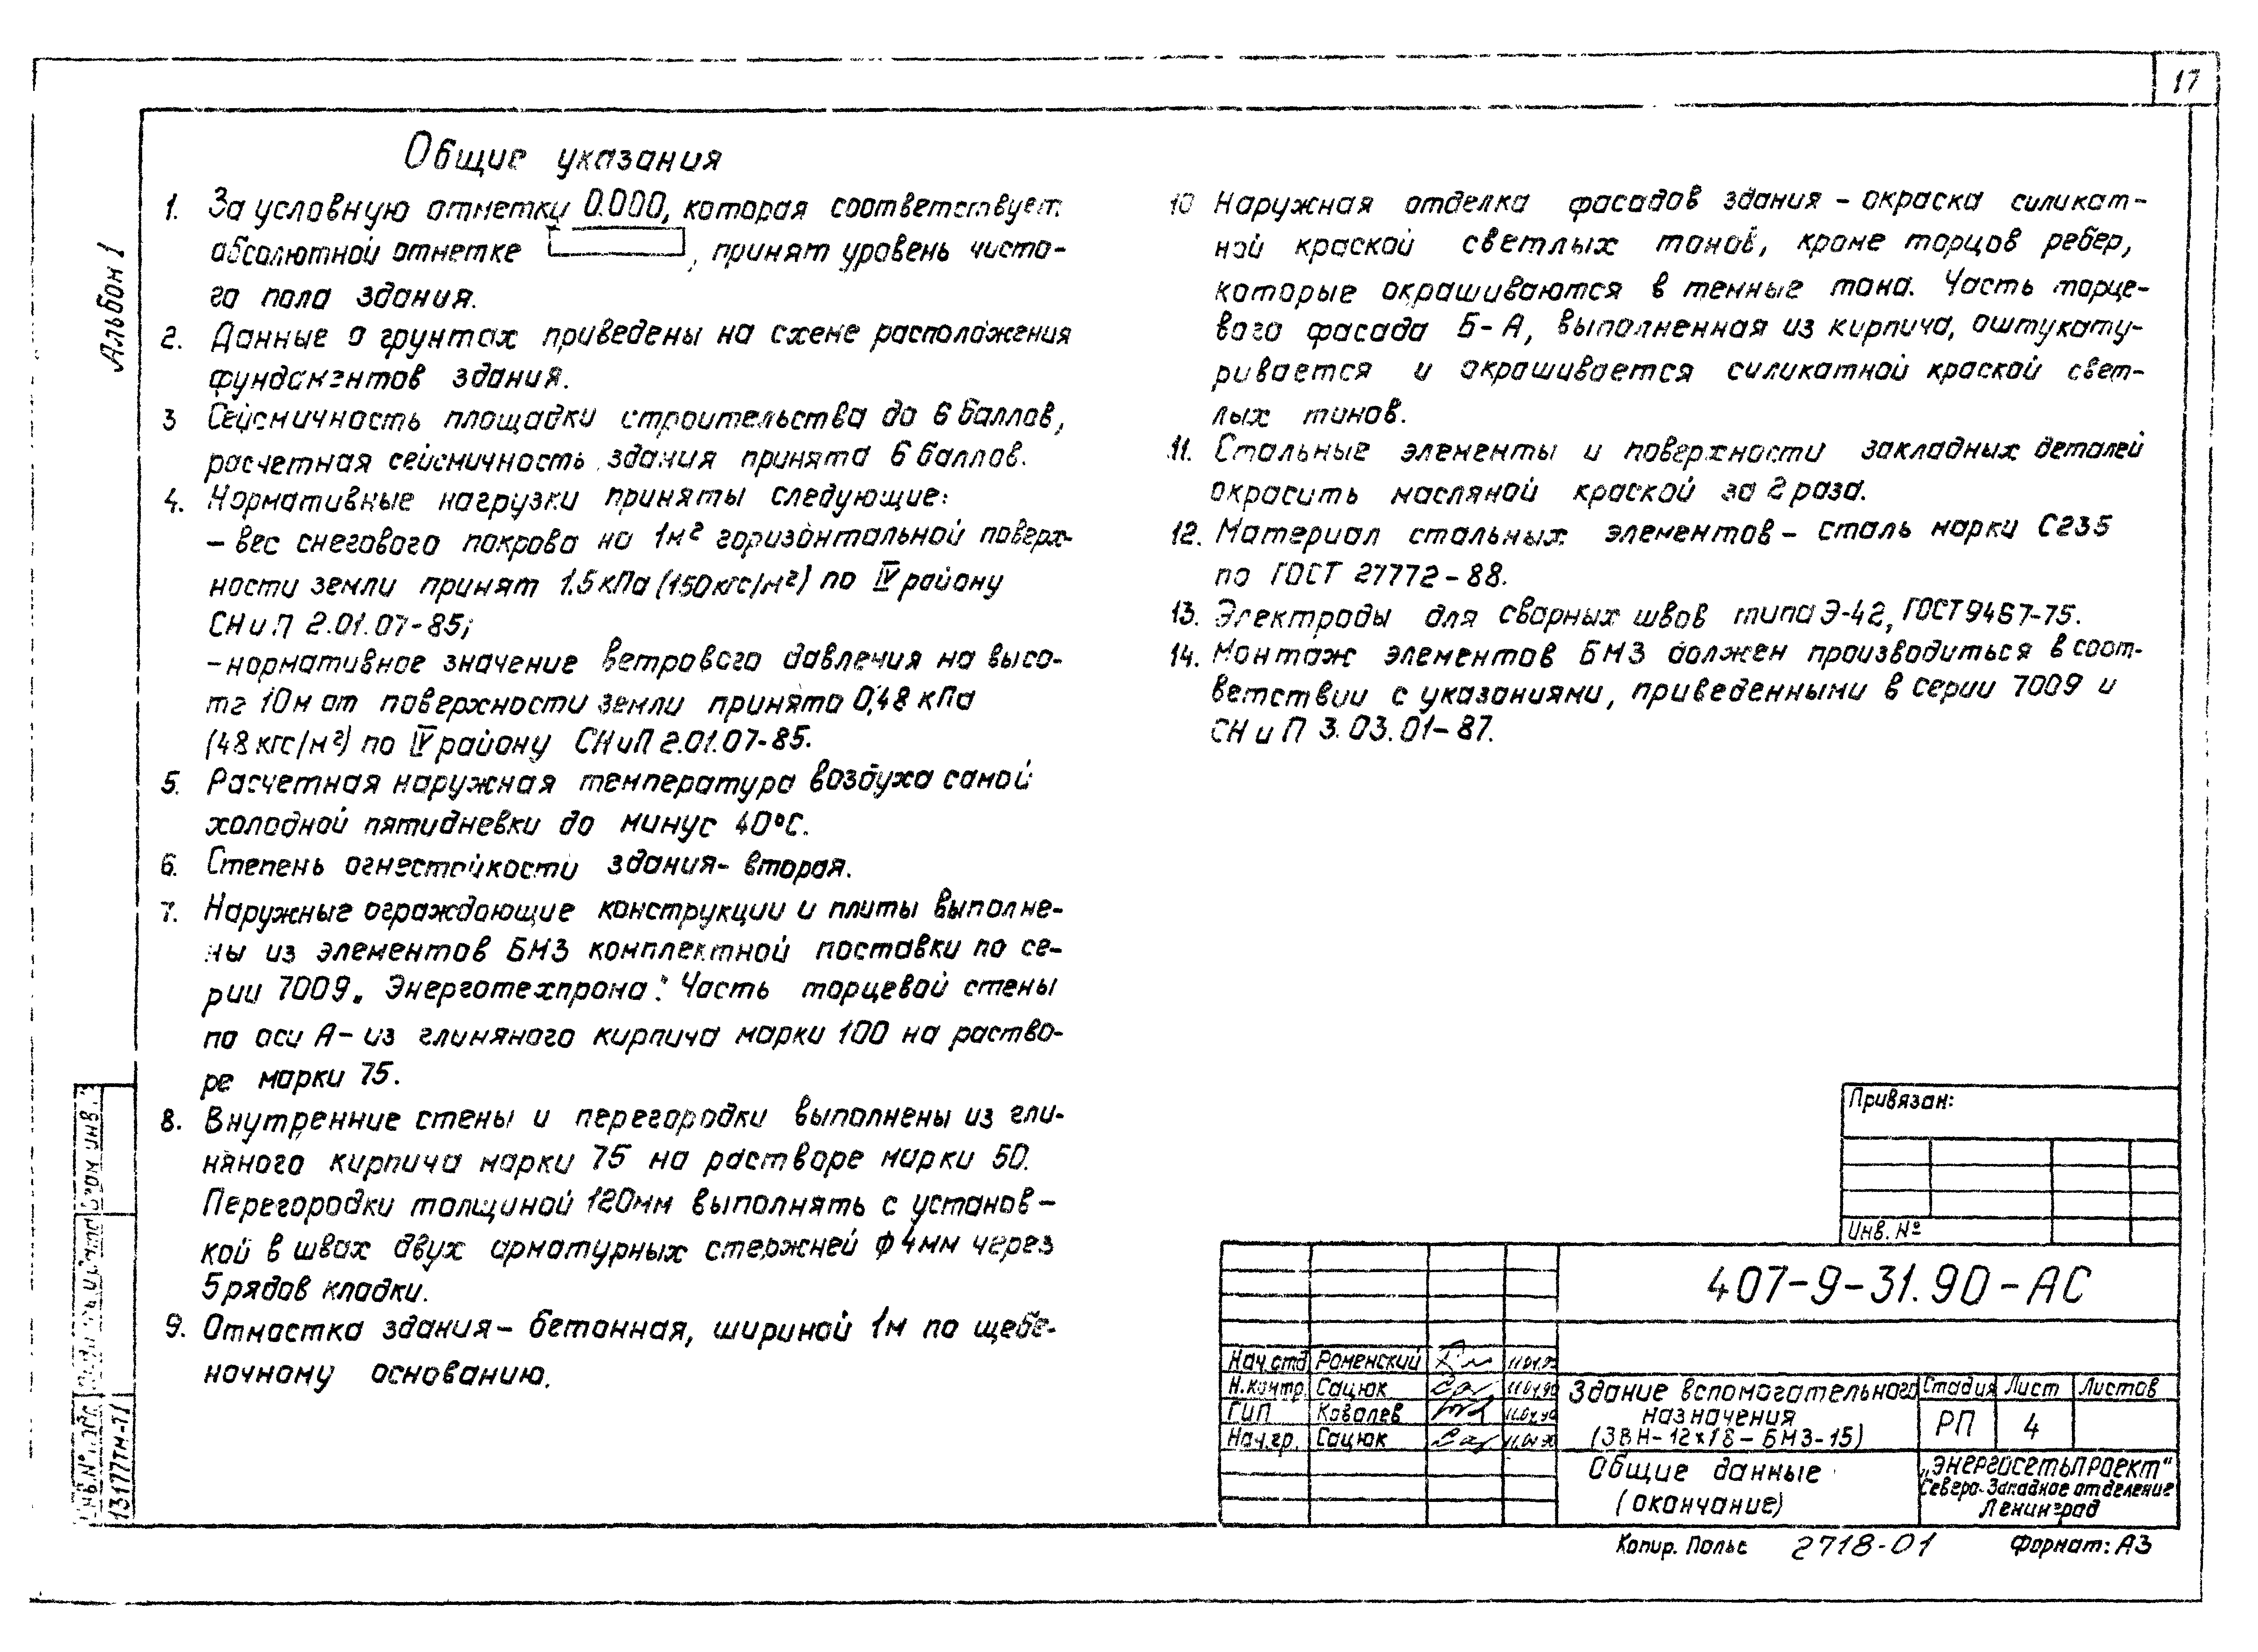 17
Альбом 1
Общие указания
1. За условную отметку 0.000, которая соответствует
абсолютной отметке , принят уровень чисто-
го пола здания.
2. Данные о грунтах приведены на схеме расположения
фундаментов здания.
3 Сейсмичность площадки строительства до 6 баллов,
расчетная сейсмичность здания принята 6 баллов.
4. Нормативные нагрузки приняты следующие:
– вес снегового покрова на 1м² горизонтальной поверх-
ности земли принят 1.5 кПа (150кгс/м²) по IV району
СНиП 2.01.07-85;
– нормативное значение ветрового давления на высо-
те 10м от поверхности земли принято 0,48 кПа
(48 кгс/м²) по IV району СНиП 2.01.07-85.
5. Расчетная наружная температура воздуха самой
холодной пятидневки до минус 40°С.
6. Степень огнестойкости здания- вторая.
7. Наружные ограждающие конструкции и плиты выполне-
ны из элементов БМЗ комплектной поставки по се-
рии 7009 „Энерготехпрома". Часть торцевой стены
по оси А – из глиняного кирпича марки 100 на раство-
ре марки 75.
8. Внутренние стены и перегородки выполнены из гли-
няного кирпича марки 75 на растворе марки 50.
Перегородки толщиной 120мм выполнять с установ-
кой в швах двух арматурных стержней ф 4мм через
5 рядов кладки.
9. Отмостка здания – бетонная, шириной 1м по щебе-
ночному основанию.
10 Наружная отделка фасадов здания – окраска силикат-
ной краской светлых тонов, кроме торцов ребер,
которые окрашиваются в темные тона. Часть торце-
вого фасада Б-А, выполненная из кирпича, оштукату-
ривается и окрашивается силикатной краской свет-
лых тинов.
11. Стальные элементы и поверхности закладных деталей
окрасить масляной краской за 2 раза.
12. Материал стальных элементов – сталь марки С235
по ГОСТ 27772-88.
13. Электроды для сварных швов типа Э-42, ГОСТ 9467-75.
14. Монтаж элементов БМЗ должен производиться в соот-
ветствии с указаниями, приведенными в серии 7009 и
СНиП 3.03.01-87.
Привязан:
Инв. №
407-9-31.90-АС
Нач.отд Роменский
Н.контр. Сацюк
ГИП Ковалев
Нач.гр. Сацюк
Здание вспомогательного
назначения
(ЗВН-12х18-БМЗ-15)
Стадия Лист Листов
РП 4
Общие данные
(окончание)
„ЭНЕРГОСЕТЬПРОЕКТ"
Северо-Западное отделение
Ленинград
Взам инв.
13177тм-т1
Копир. Польс 2718-01 Формат: А3